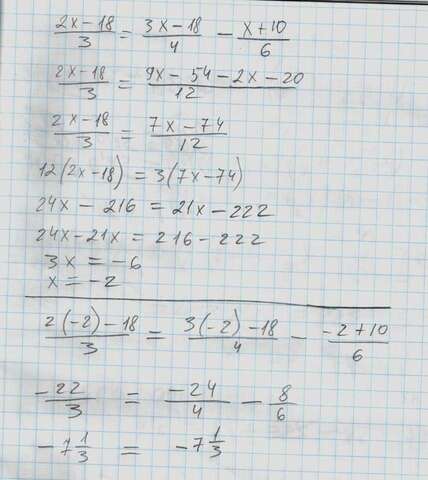 (2x-18)/3 = (3x-18)/4 - (x+10)/6
(2x-18)/3 = (9x-54-2x-20)/12
(2x-18)/3 = (7x-74)/12
12(2x-18) = 3(7x-74)
24x - 216 = 21x - 222
24x-21x = 216-222
3x = -6
x = -2
(2(-2)-18)/3 = (3(-2)-18)/4 - (-2+10)/6
-22/3 = -24/4 - 8/6
-7 1/3 = -7 1/3